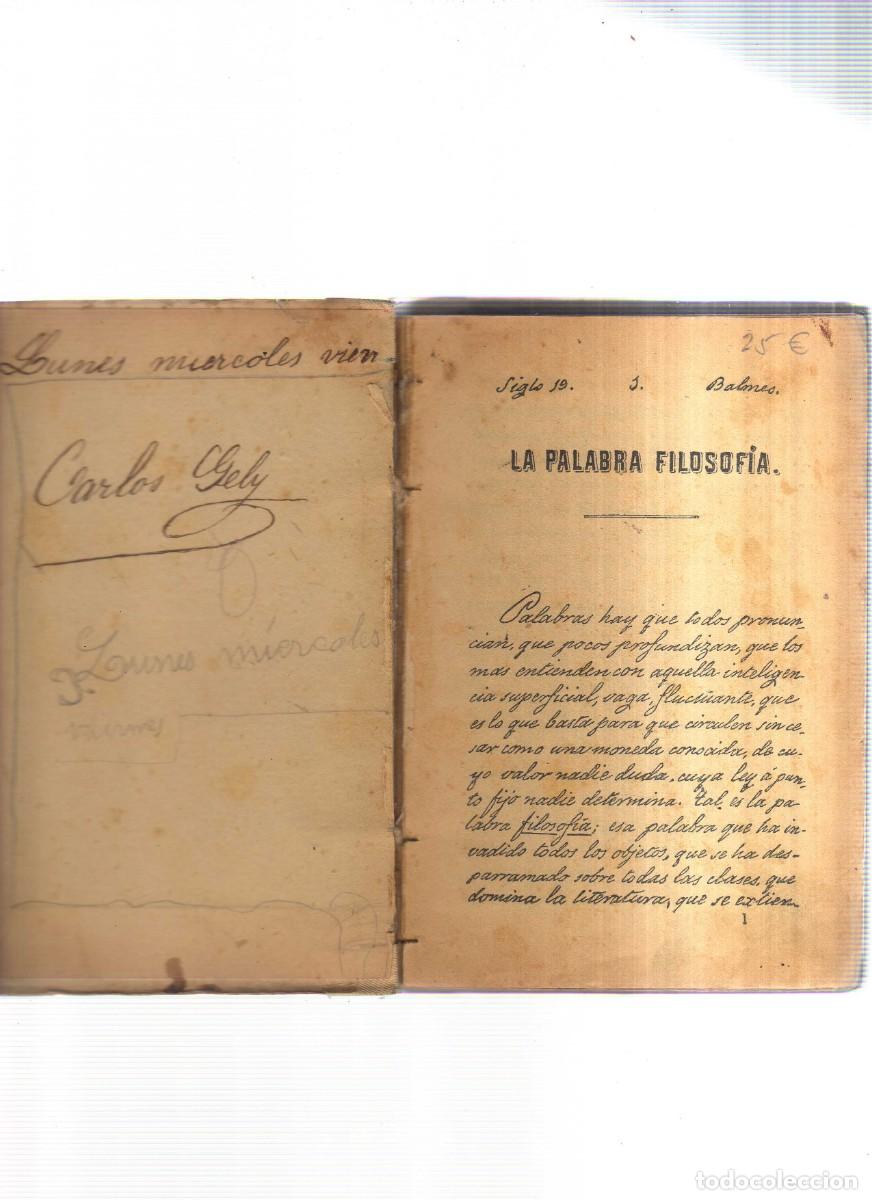 Lunes miercoles vier
Carlos Gely
Lunes miércoles
25 €
Siglo 19. J. Balmes.
LA PALABRA FILOSOFÍA.
Palabras hay que todos pronun-
cian, que pocos profundizan, que los
mas entienden con aquella inteligen-
cia superficial, vaga, fluctuante, que
es lo que basta para que circulen sin ce-
sar como una moneda conocida, de cu-
yo valor nadie duda, cuya ley á pun-
to fijo nadie determina. Tal es la pa-
labra filosofía; esa palabra que ha in-
vadido todos los objetos, que se ha des-
parramado sobre todas las clases, que
domina la literatura, que se extien-
1
todocoleccion